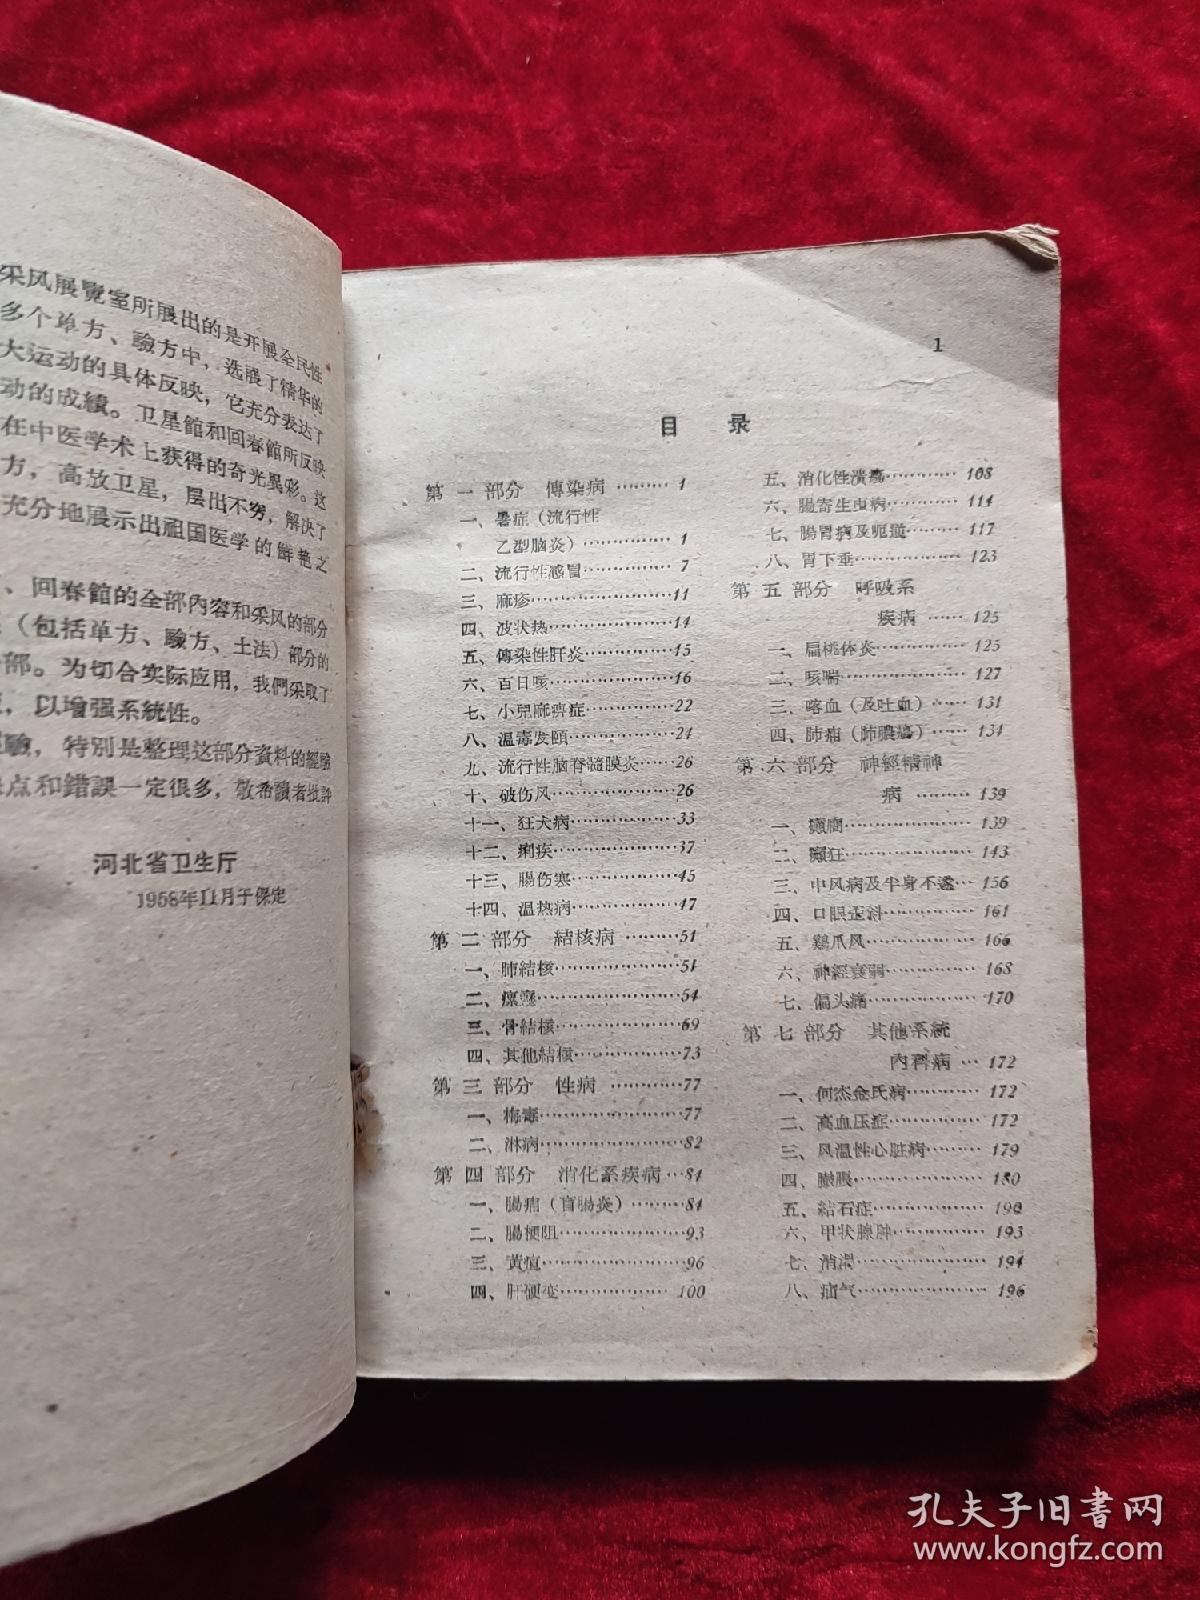 采风展覽室所展出的是开展全民性
多个单方、驗方中，选展了精华的
大运动的具体反映，它充分表达了
动的成績。卫星館和回春館所反映
在中医学术上获得的奇光異彩。这
方，高放卫星，层出不穷，解决了
充分地展示出祖国医学的鲜艳之
、回春館的全部內容和采风的部分
（包括单方、驗方、土法）部分的
部。为切合实际应用，我們采取了
，以增强系統性。
驗，特別是整理这部分資料的經驗
点和錯誤一定很多，敬希讀者批評
河北省卫生厅
1958年11月于保定
1
目 录
第一部分 傳染病………1
一、暑症（流行性
乙型脑炎）……………1
二、流行性感冒……………7
三、麻疹…………………11
四、波状热………………14
五、傳染性肝炎…………15
六、百日咳………………16
七、小兒麻痹症…………22
八、温毒发頤……………24
九、流行性脑脊髓膜炎……26
十、破伤风………………26
十一、狂犬病……………33
十二、痢疾………………37
十三、腸伤寒……………45
十四、温热病……………47
第二部分 結核病………51
一、肺結核………………51
二、瘰癧…………………54
三、骨結核………………69
四、其他結核……………73
第三部分 性病…………77
一、梅毒…………………77
二、淋病…………………82
第四部分 消化系疾病…84
一、腸痈（盲腸炎）………84
二、腸梗阻………………93
三、黃疸…………………96
四、肝硬变………………100
五、消化性潰瘍…………108
六、腸寄生虫病…………114
七、腸胃病及呃逆………117
八、胃下垂………………123
第五部分 呼吸系
疾病……125
一、扁桃体炎……………125
二、咳喘…………………127
三、喀血（及吐血）………131
四、肺痈（肺膿瘍）………134
第六部分 神經精神
病………139
一、癲癇…………………139
二、癲狂…………………143
三、中风病及半身不遂…156
四、口眼歪斜……………161
五、鷄爪风………………166
六、神經衰弱……………168
七、偏头痛………………170
第七部分 其他系統
內科病…172
一、何杰金氏病…………172
二、高血压症……………172
三、风湿性心脏病………179
四、臌脹…………………180
五、結石症………………190
六、甲状腺肿……………193
七、消渴…………………194
八、疝气…………………196
孔夫子旧书网
www.kongfz.com